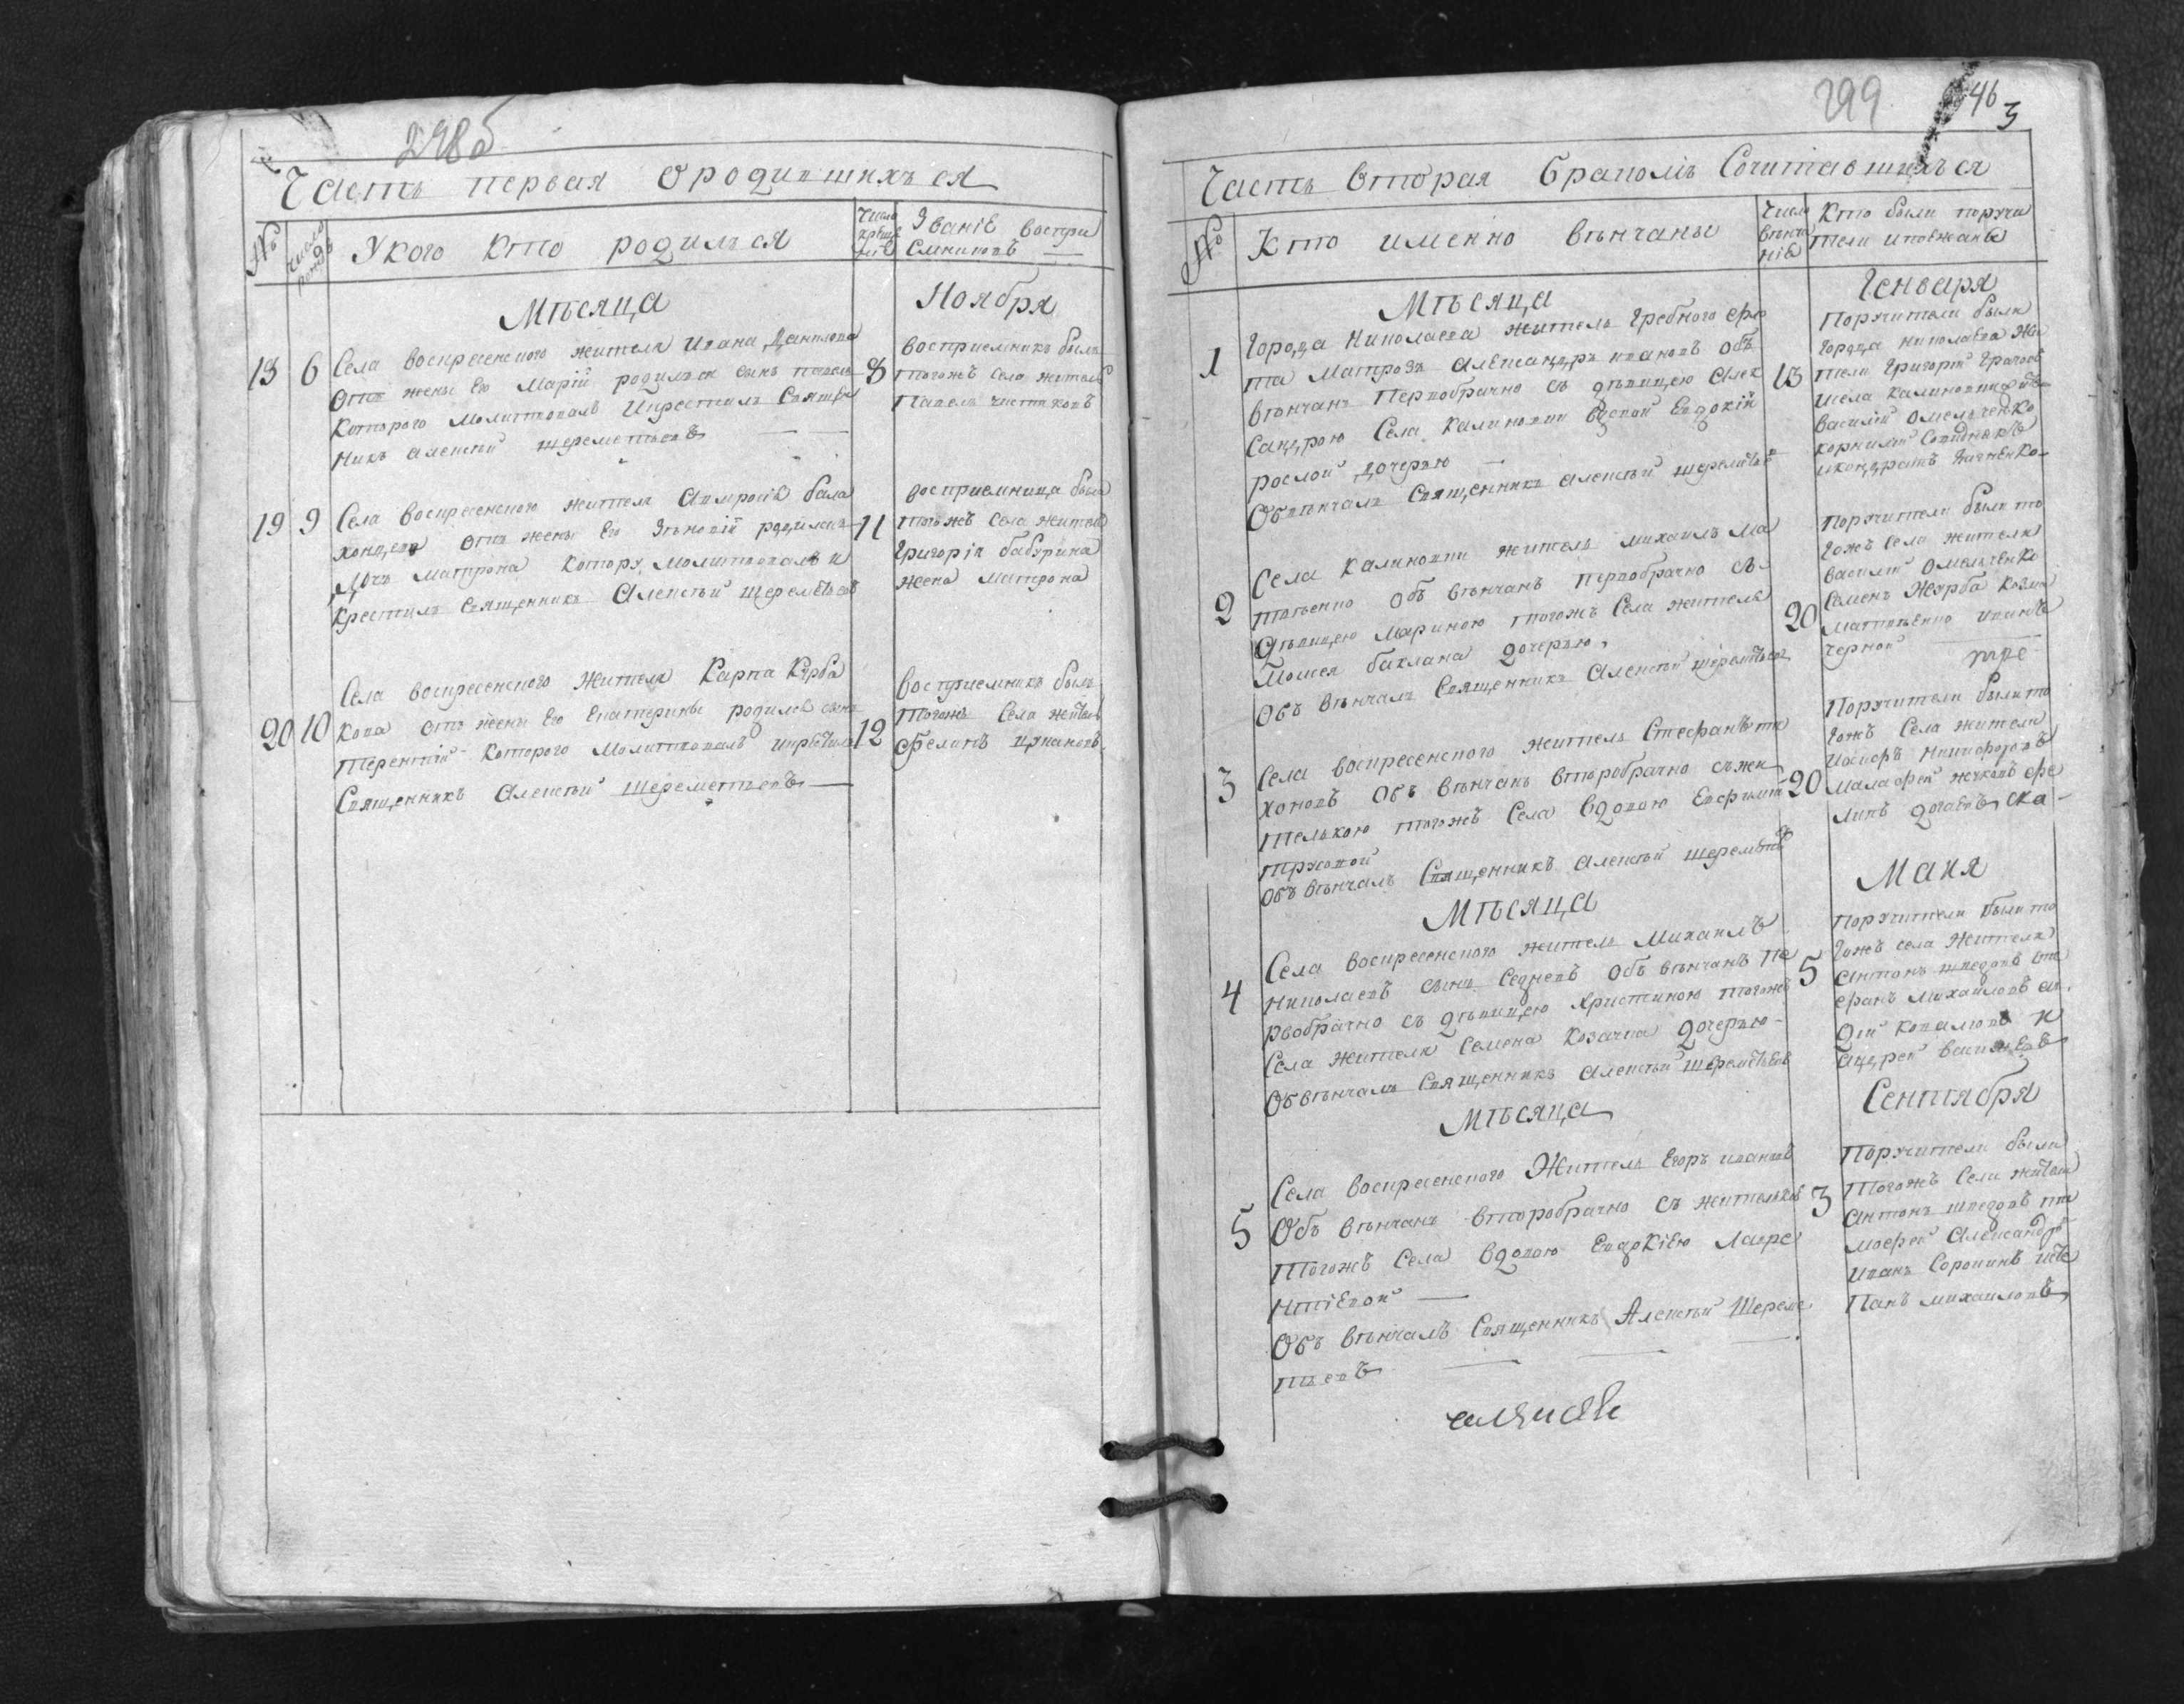 298б
Часть первая о родившихъся
№
число рожд
У кого кто родился
Число крещенiе
Званiе воспри
емниковъ
Мѣсяца
Ноября
18 6 Села воскресенского жителя Ивана Данилова
отъ жены Ево Марiй родился сынъ павелъ
которого молитвовалъ и крестилъ Священ
никъ алексѣй шереметьевъ
8
восприемникъ былъ
тогожъ села житель
Павелъ чистяковъ
19 9 Села воскресенского жителя Амвросiя бала
хонцева отъ жены Ево Зѣновiй родилась
дочь матрона котору молитвовалъ и
крестилъ священникъ Алексѣй шереметьевъ
11
восприемница была
тогожъ села жителя
Григорiя бабурина
жена матрона
20 10 Села воскресенского жителя Карпа Курба
кова отъ жены Ево Екатерины родился сынъ
терентiй которого молитвовалъ и крестилъ
Священникъ Алексѣй шереметьевъ
12
восприемникъ былъ
тогожъ Села житель
299
46
3
Часть вторая бракомъ Сочитавшихъся
№
Кто именно вѣнчаны
Число вѣнча нiя
Кто были поручи
тели и поѣжаны
Мѣсяца
Генваря
1 Города Николаева житель Гребного фло
та матрозъ александръ ивановъ объ
вѣнчанъ первобрачно съ дѣвицею алек
сандрою Села калиновки вдовой Евдокiй
рослой дочерью
Обвѣнчалъ священникъ алексѣй шереметьевъ
13
Поручители были
города николаева жи
тели григорiй грачовъ
и села калиновки
василiй омельченко
корнилiй
и кондратъ
2 Села калиновки житель михаилъ ма
твѣенко объ вѣнчанъ первобрачно съ
дѣвицею мариною тогожъ Села жителя
моисея баклана дочерью,
объ вѣнчалъ Священникъ алексѣй шереметьевъ
20
поручители были то
гожъ села жители
василiй омельченко
семенъ Журба козма
матвѣенко иванъ
черной
3 Села воскресенского житель Стефанъ ти
хоновъ объ вѣнчанъ второбрачно съ жи
телькою тогожъ Села вдовою
объ вѣнчалъ Священникъ алексѣй шереметьевъ
20
Поручители были то
гожъ Села жители
никифоровъ
малафей жуковъ фи
липъ
Мѣсяца
Маия
4 Села воскресенского житель Михаилъ
николаевъ сынъ Седневъ объ вѣнчанъ пе
рвобрачно съ дѣвицею христиною тогожъ
села жителя семена козачка дочерью
Обвѣнчалъ Священникъ алексѣй шереметьевъ
5
поручители были то
гожъ села жители
антонъ шведовъ сте
фанъ михайловъ ав
дей ковалювъ и
андрей васильевъ
Мѣсяца
Сентября
5 Села воскресенского Житель Егоръ ивановъ
Объ вѣнчанъ второбрачно съ жителькою
тогожъ Села вдовою Евдокiею Лавре
нтiевой
Объ вѣнчалъ Священникъ Алексѣй Шереме
тьевъ
3
Поручители были
тогожъ Села жители
антонъ шведовъ ти
мофей александр
иванъ Сорокинъ исте
панъ михайловъ